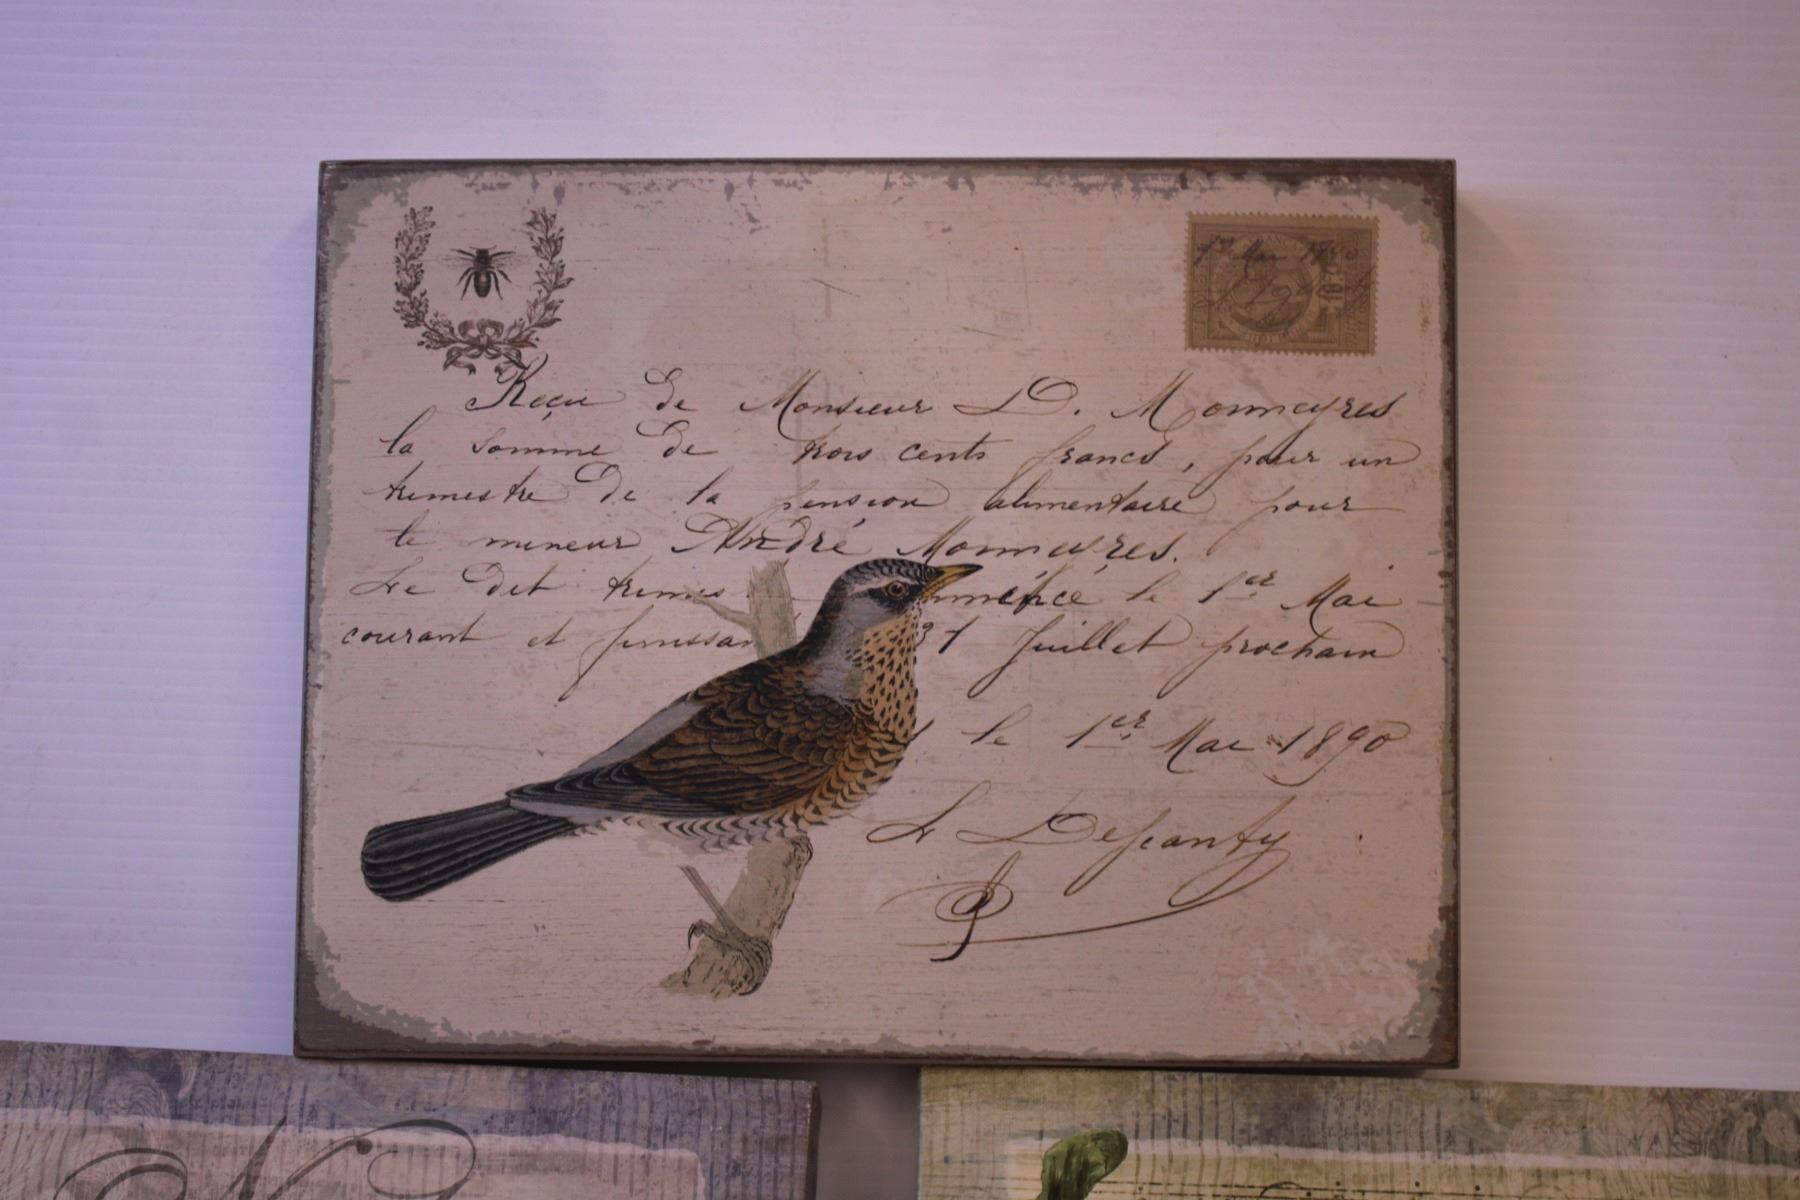 1er Mai 1890
10c
Reçu de Monsieur D. Monneyres
la somme de trois cents francs, pour un
trimestre de la pension alimentaire pour
le mineur André Monneyres.
Le dit trimes mméncé le 1er Mai
courant et finissan 31 Juillet prochain
le 1er Mai 1890